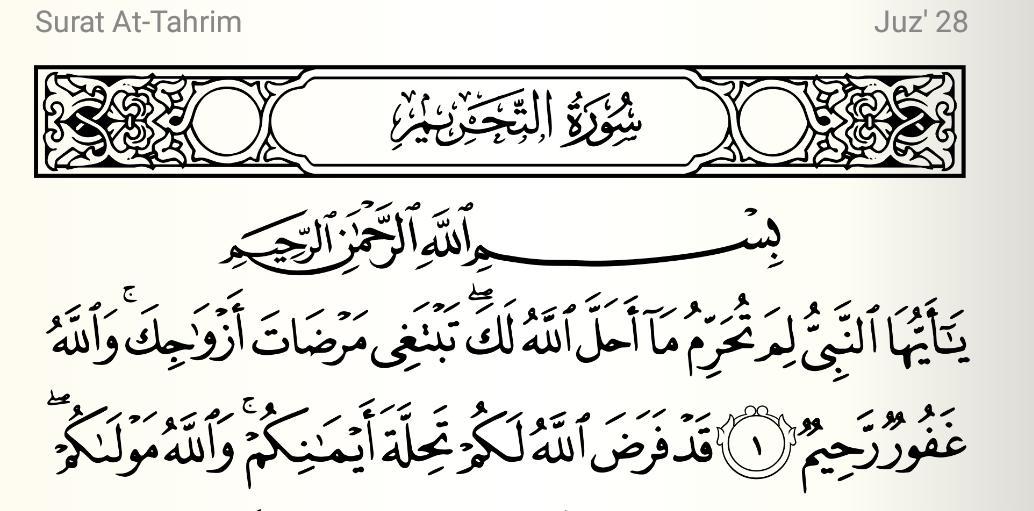 Surat At-Tahrim
Juz' 28
سُورَةُ التَّحْرِيمِ
بِسْمِ ٱللَّهِ ٱلرَّحْمَٰنِ ٱلرَّحِيمِ
يَٰٓأَيُّهَا ٱلنَّبِىُّ لِمَ تُحَرِّمُ مَآ أَحَلَّ ٱللَّهُ لَكَ ۖ تَبْتَغِى مَرْضَاتَ أَزْوَٰجِكَ ۚ وَٱللَّهُ
غَفُورٌ رَّحِيمٌ ١ قَدْ فَرَضَ ٱللَّهُ لَكُمْ تَحِلَّةَ أَيْمَٰنِكُمْ ۚ وَٱللَّهُ مَوْلَىٰكُمْ ۖ